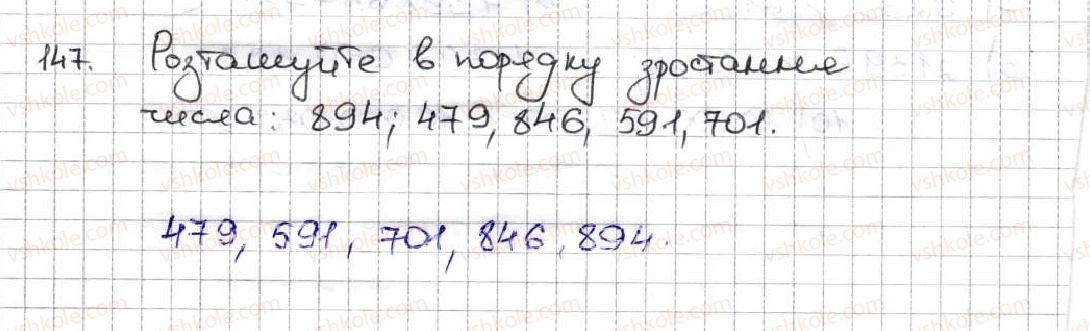 147. Розташуйте в порядку зростання
числа: 894; 479, 846, 591, 701.
479, 591, 701, 846, 894.